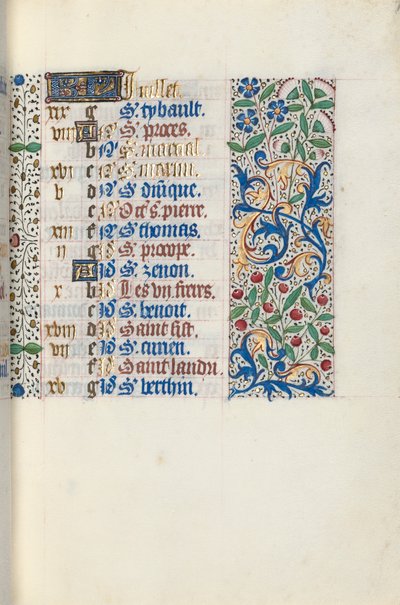 KL Juillet.
xix g S. tybault.
viii A N S. proces.
b N S. marcial.
xvi c N S. martin.
v d N S. dñique.
e N Oct. S. pierre.
xiii f N S. thomas.
ii g N S. procope.
A Id S. zenon.
x b Id Les vii freres.
c Id S. benoit.
xviii d Id Saint sist.
vii e Id S. turien.
f Id Saint landri.
xv g Id S. berthin.